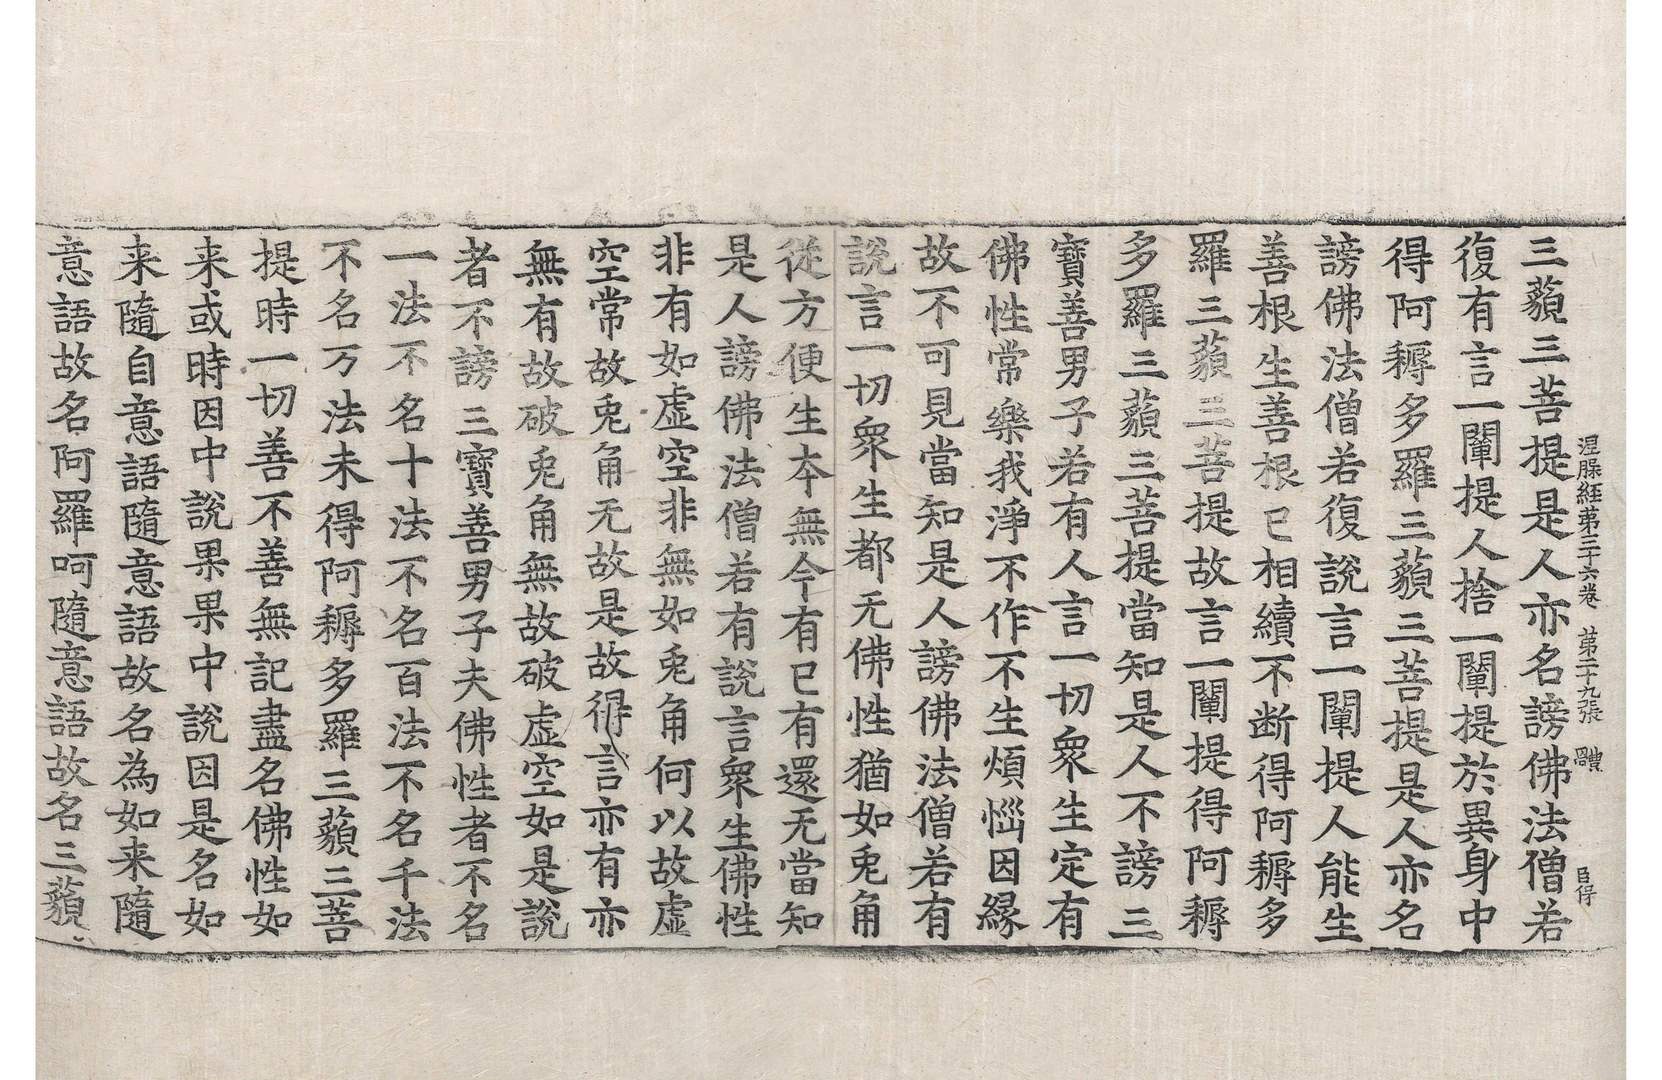 湼槃経苐三十六卷　苐二十九張　體　臣得
三藐三菩提是人亦名謗佛法僧若
復有言一闡提人捨一闡提於異身中
得阿耨多羅三藐三菩提是人亦名
謗佛法僧若復說言一闡提人能生
善根生善根已相續不断得阿耨多
羅三藐三菩提故言一闡提得阿耨
多羅三藐三菩提當知是人不謗三
寶善男子若有人言一切衆生定有
佛性常樂我淨不作不生煩惱因緣
故不可見當知是人謗佛法僧若有
說言一切衆生都无佛性猶如兎角
從方便生本無今有已有還无當知
是人謗佛法僧若有說言衆生佛性
非有如虛空非無如兎角何以故虛
空常故兎角无故是故得言亦有亦
無有故破兎角無故破虛空如是說
者不謗三寶善男子夫佛性者不名
一法不名十法不名百法不名千法
不名万法未得阿耨多羅三藐三菩
提時一切善不善無記盡名佛性如
来或時因中說果果中說因是名如
来隨自意語隨意語故名為如来隨
意語故名阿羅呵隨意語故名三藐